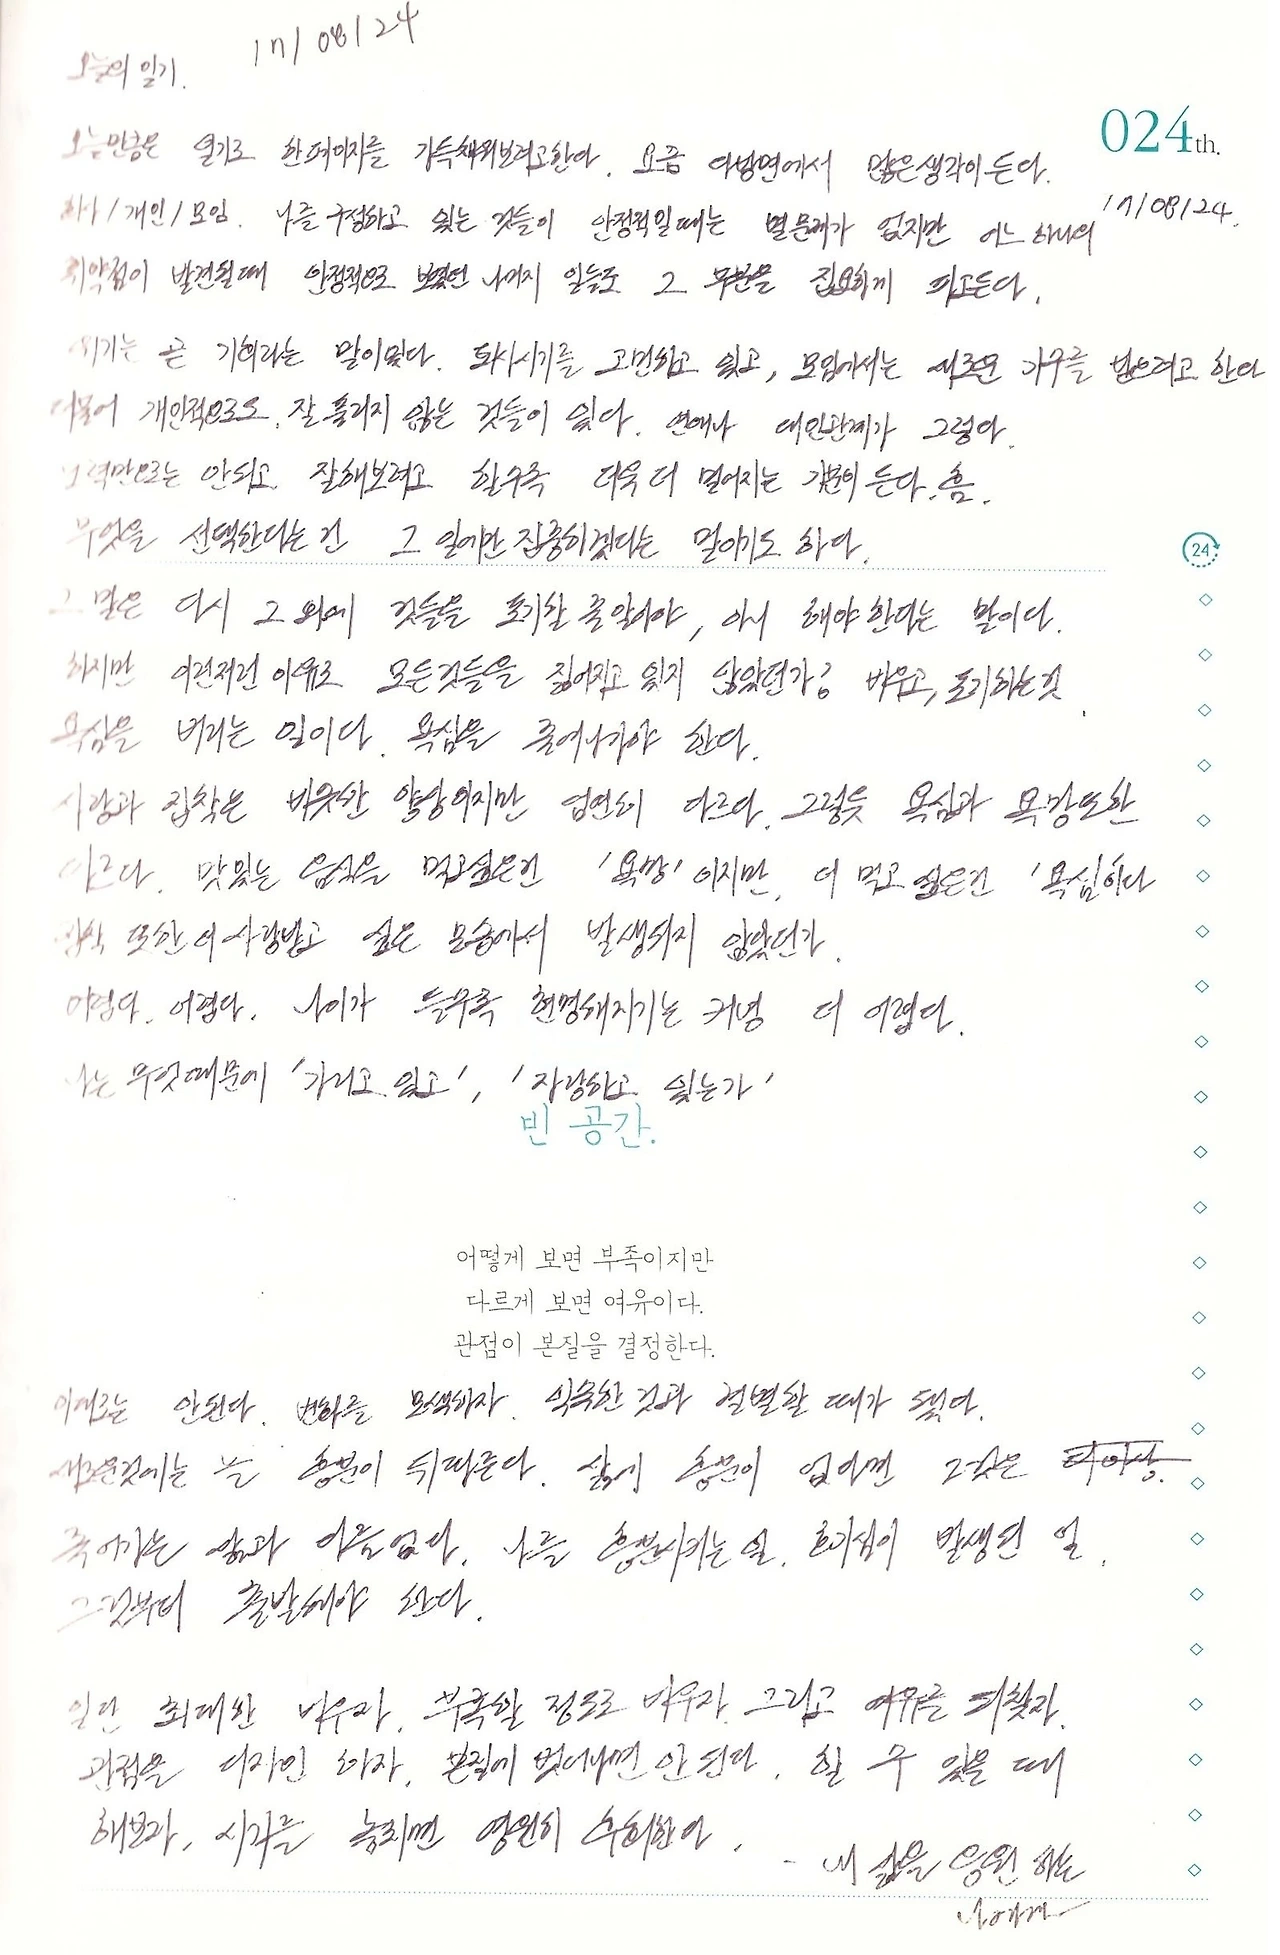 오늘의 일기.
17/08/24
024th.
오늘만큼은 일기로 한페이지를 가득채워보려고한다. 요즘 다방면에서 많은생각이든다.
17/08/24.
회사/개인/모임. 나를구성하고 있는 것들이 안정적일때는 별문제가 없지만 어느하나의
취약점이 발견될때 안정적으로 보였던 나머지 일들도 그 부분을 집요하게 파고든다.
위기는 곧 기회라는 말이맞다. 퇴사시기를 고민하고 있고, 모임에서는 새로운 가구를 받으려고 한다
더불어 개인적으로도 잘 풀리지 않는 것들이 있다. 연애나 대인관계가 그렇다.
노력만으로는 안되고 잘해보려고 할수록 더욱더 멀어지는 기분이 든다.흠.
무엇을 선택한다는건 그 일에만 집중하겠다는 말이기도 하다.
24
그 말은 다시 그 외에 것들을 포기할 줄알아야, 아니 해야한다는 말이다.
하지만 이런저런 이유로 모든것들을 짊어지고 있지 않았던가? 비우고, 포기하는것.
욕심을 버리는 일이다. 욕심을 줄여나가야 한다.
사랑과 집착은 비슷한 양상이지만 엄연히 다르다. 그렇듯 욕심과 욕망또한
다르다. 맛있는 음식을 먹고싶은건 '욕망'이지만, 더 먹고 싶은건 '욕심이다
집착 또한 더 사랑받고 싶은 모습에서 발생되지 않았던가.
어렵다. 어렵다. 나이가 들수록 현명해지기는 커녕 더 어렵다.
나는 무엇때문에 '가리고 있고', '자랑하고 있는가'
빈 공간.
어떻게 보면 부족이지만
다르게 보면 여유이다.
관점이 본질을 결정한다.
이대로는 안된다. 변화를 모색하자. 익숙한 것과 결별할 때가 됐다.
새로운것에는 늘 흥분이 뒤따른다. 삶에 흥분이 없다면 그것은
죽어가는 삶과 다름없다. 나를 흥분시키는일. 호기심이 발생된 일.
그것부터 출발해야 한다.
일단 최대한 비우자. 부족할 정도로 비우자. 그리고 여유를 되찾자.
관점을 디자인 하자. 본질에 벗어나면 안 된다. 할 수 있을 때
해보라. 시기를 놓치면 영원히 후회한다.
- 내 삶을 응원 하는
나에게